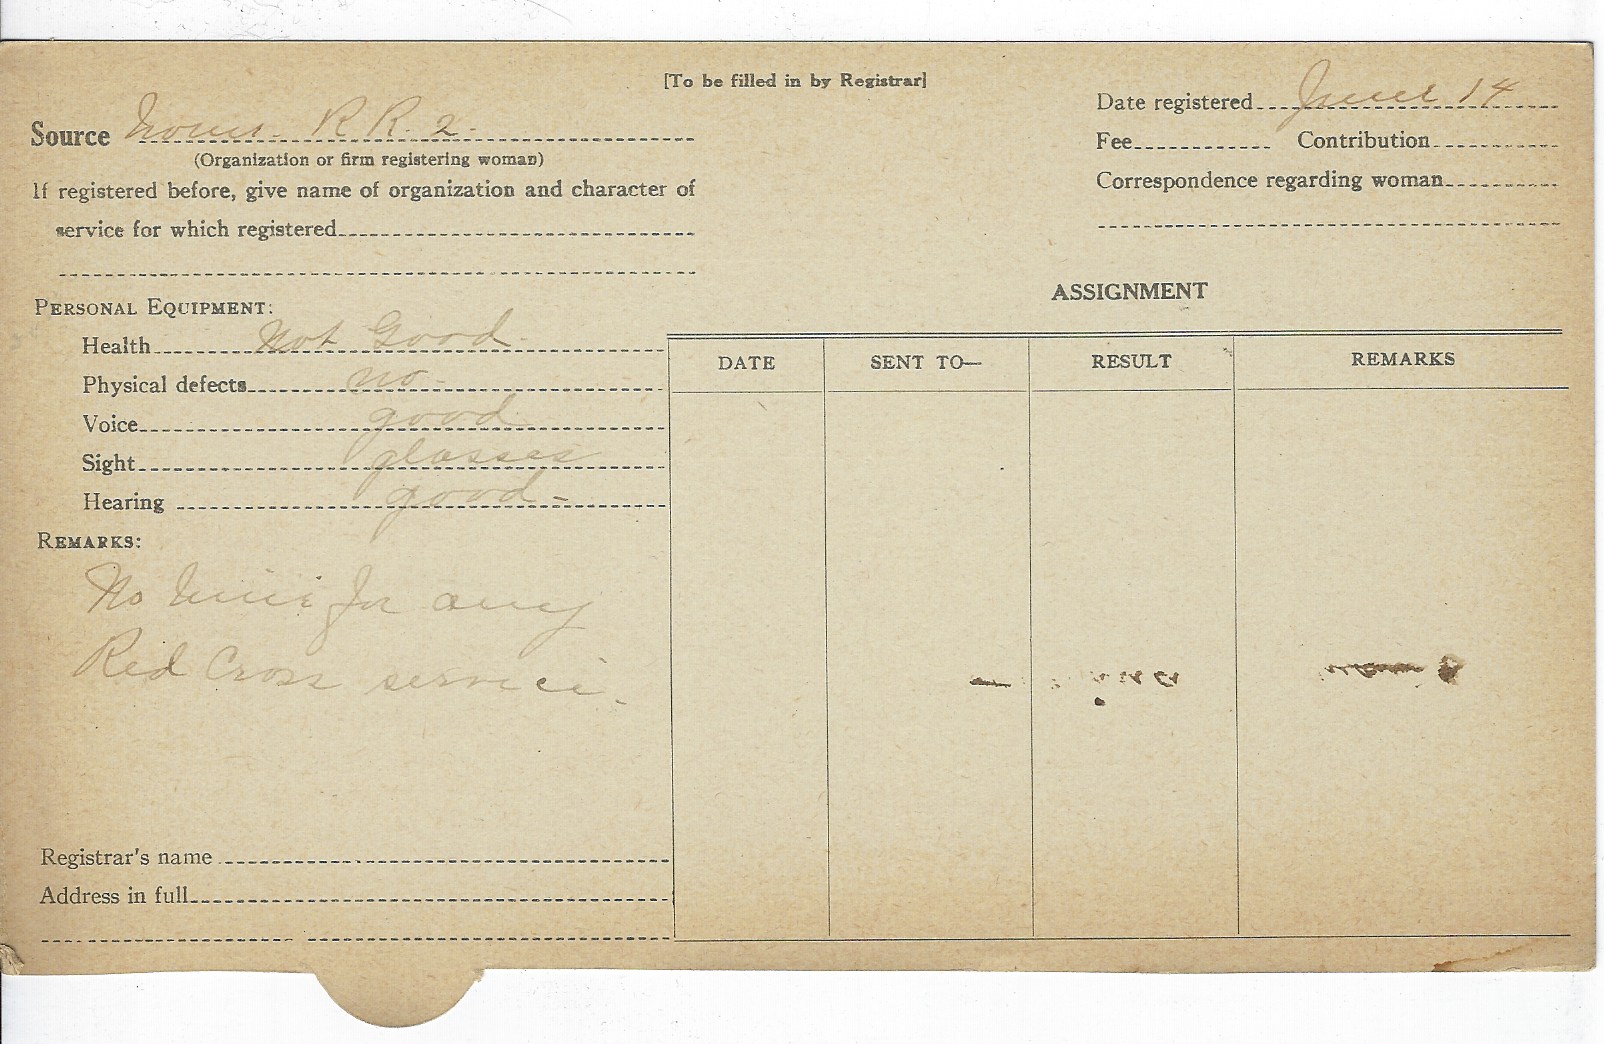 [To be filled in by Registrar]
Date registered June 14
Source R R. 2.
(Organization or firm registering woman)
Fee Contribution
If registered before, give name of organization and character of
Correspondence regarding woman
service for which registered
ASSIGNMENT
PERSONAL EQUIPMENT:
Health Not Good.
Physical defects no-
Voice good
Sight glasses
Hearing good-
DATE SENT TO— RESULT REMARKS
REMARKS:
No time for any
Red Cross service.
Registrar's name
Address in full